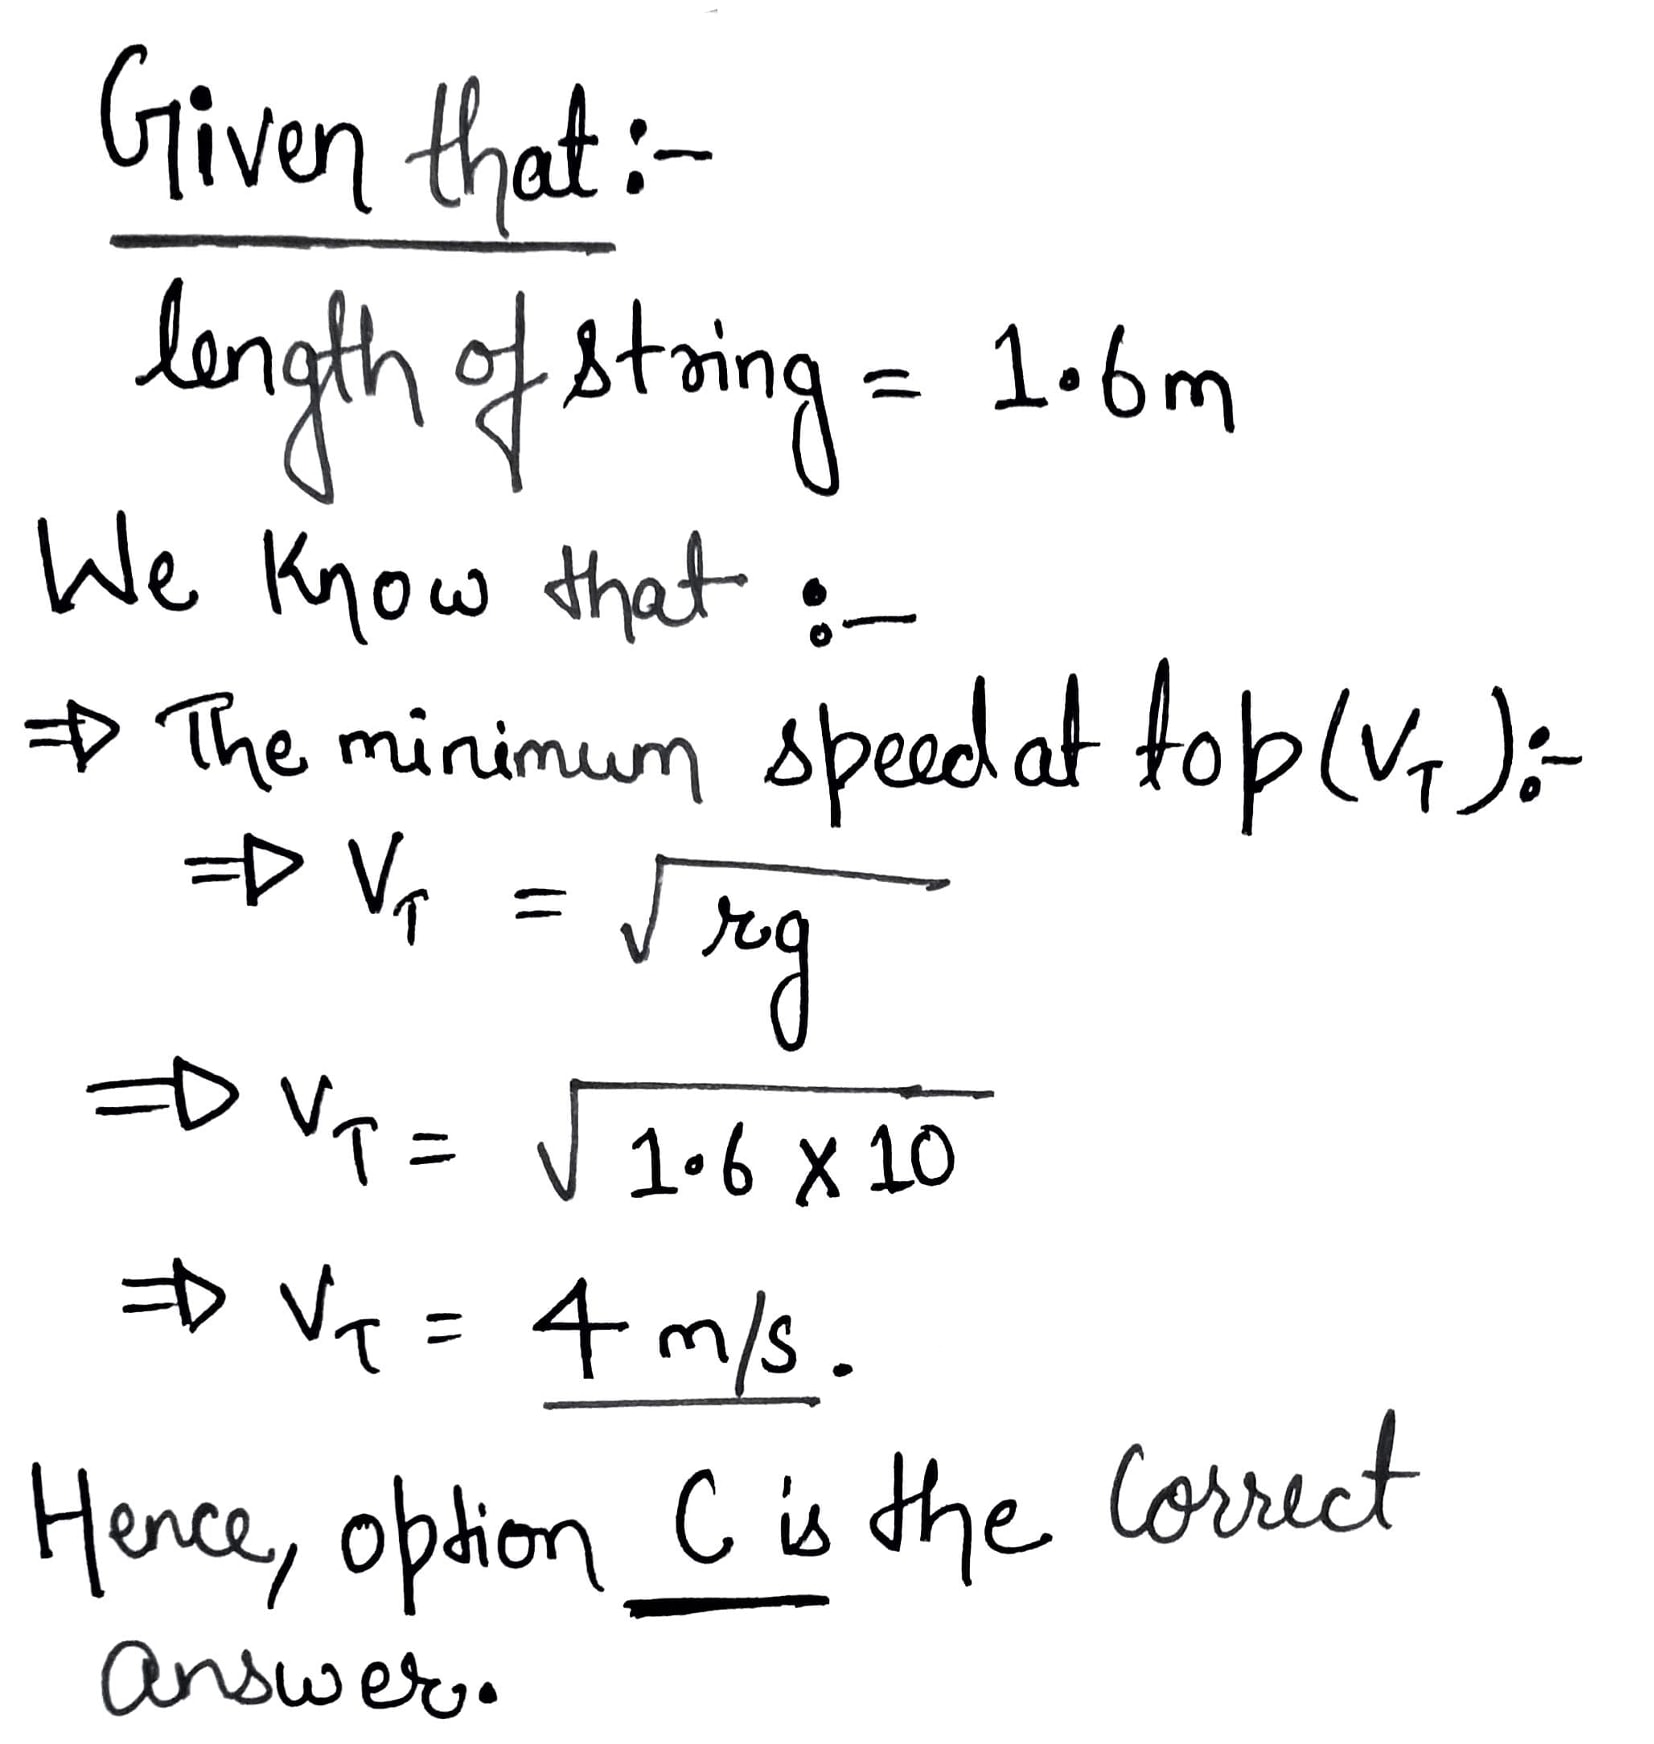 Given that :-
length of string = 1.6m
We know that :-
⇒ The minimum speed at top (V_T) :-
⇒ V_T = √rg
⇒ V_T = √1.6 × 10
⇒ V_T = 4 m/s.
Hence, option C is the correct
answer.